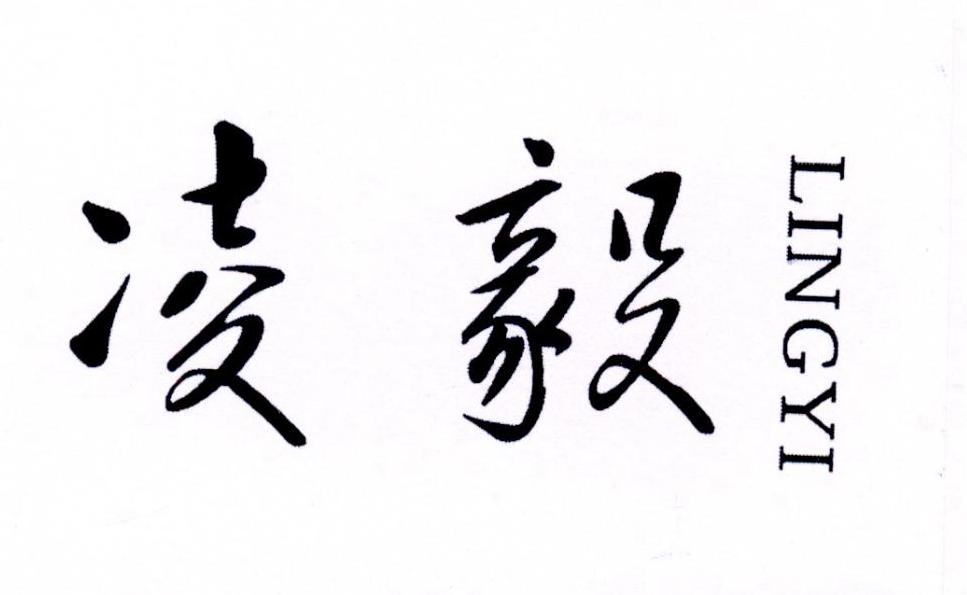 凌毅
LINGYI